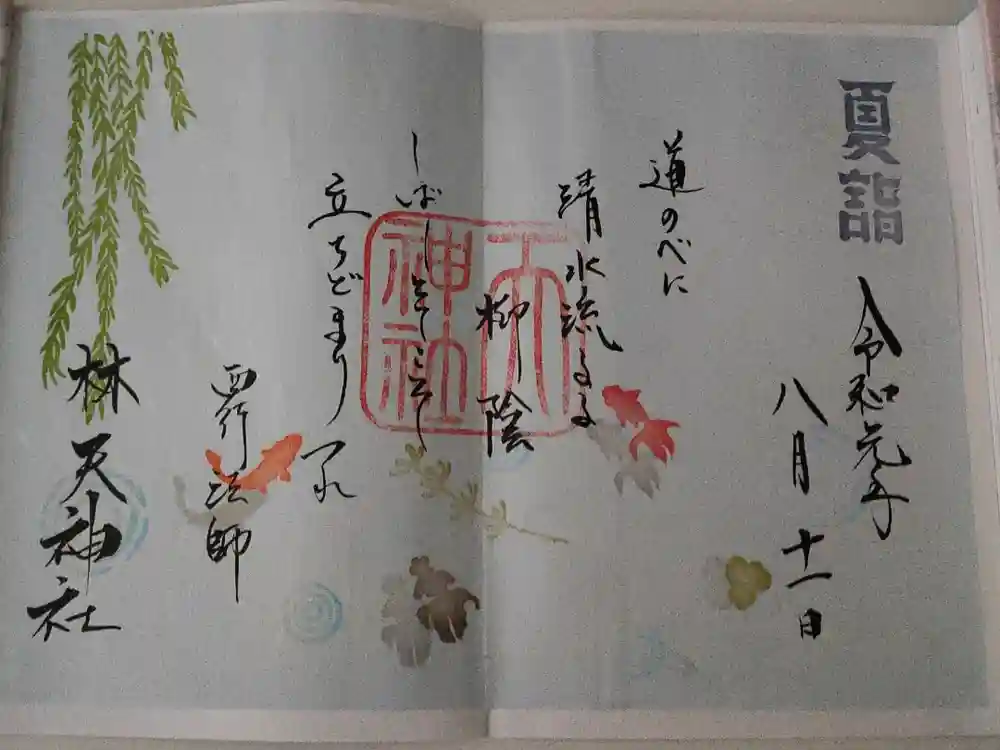 夏詣
令和元年
八月十一日
道のべに
清水流るる
柳陰
しばしとてこそ
立ちどまり
つれ
西行法師
林天神社
天
神社